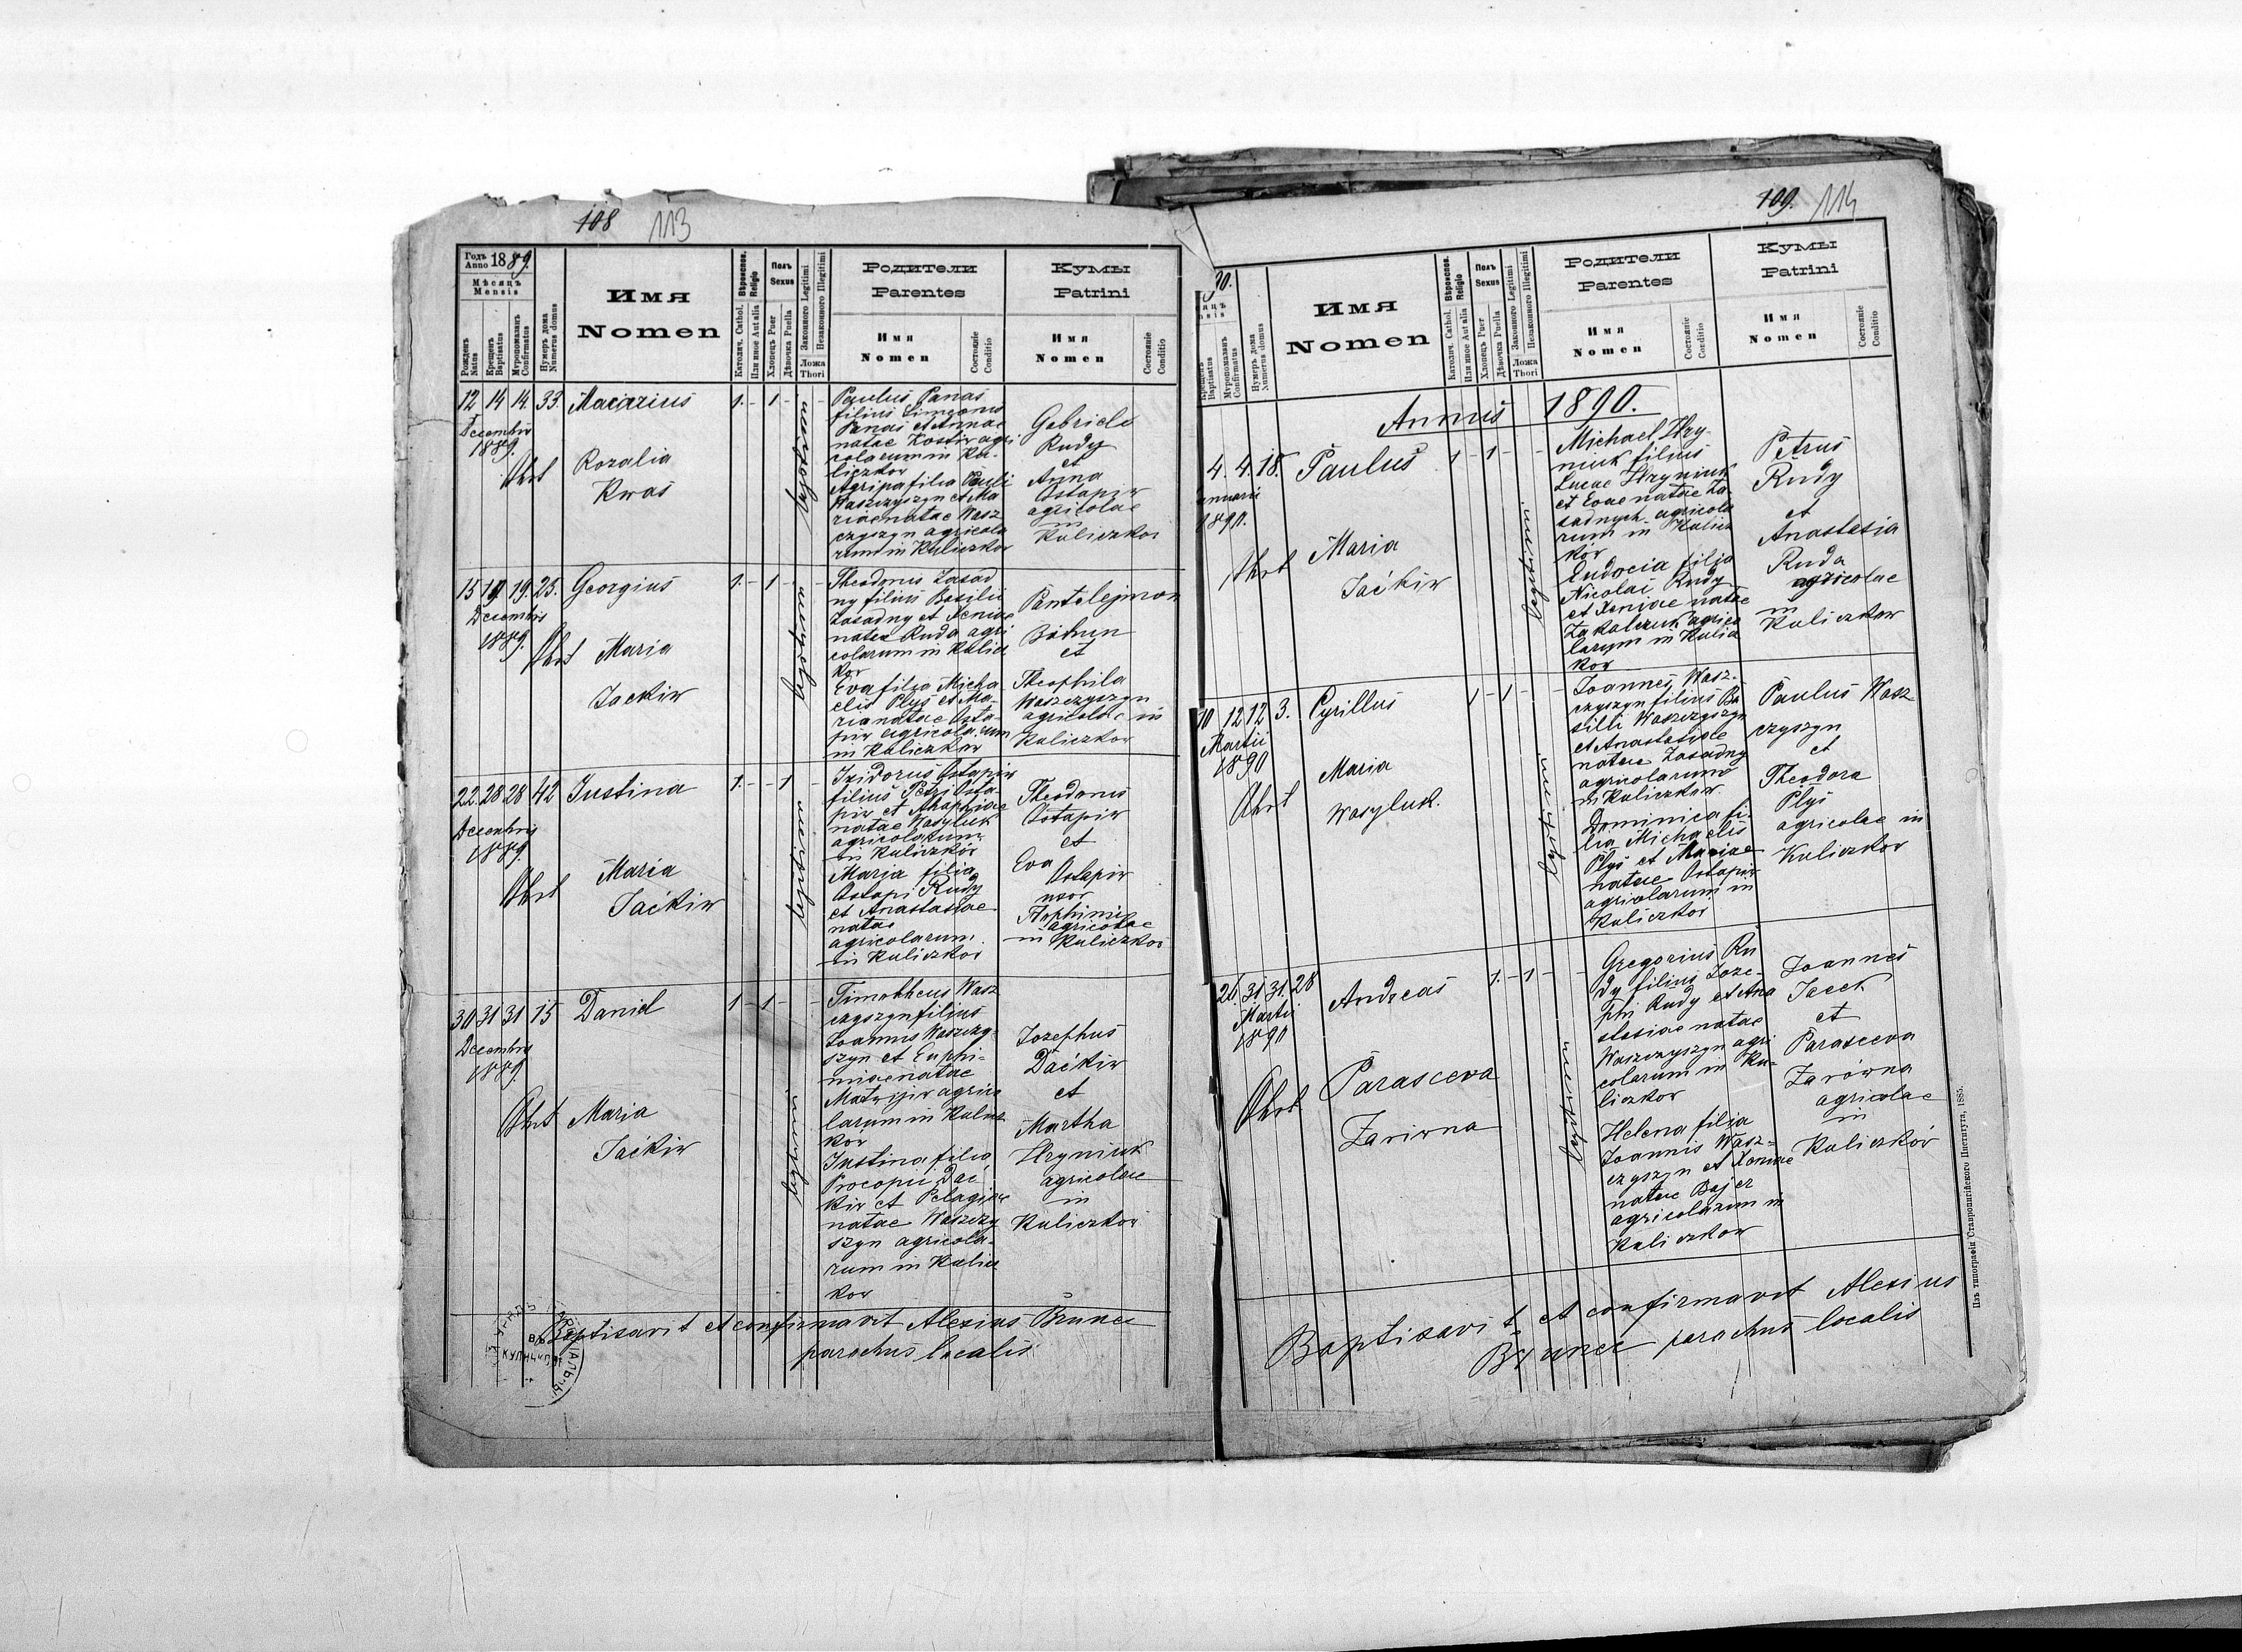 108 113
Годъ Anno 1889.
Мѣсяцъ
Mensis
Рожденъ Natus
Крещенъ Baptisatus
Муропомазанъ Confirmatus
Нумеръ дома Numerus domus
Имя
Nomen
Вѣроиспов. Religio
Католич. Cathol.
Или иное Aut alia
Полъ Sexus
Хлопецъ Puer
Дѣвочка Puella
Законного Legitimi
Незаконного Illegitimi
Ложа Thori
Родители
Parentes
Имя
Nomen
Состояніе
Conditio
Кумы
Patrini
Имя
Nomen
Состояніе
Conditio
12 14 14. 33. Macarius 1. - 1 - -
Decembris
1889.
Obst Rozalia
Kwas
Paulus Panas
filius Simeonis
Panas et Annae
natae Kostiw agri
colarum in Ku-
liczkow
Agripa filia Pauli
Waszczyszyn et Ma
riae natae Wasz
czyszyn agricola
rum in Kuliczkow
Gabriele
Rudy
et
Anna
Ostapiw
agricolae
in
Kuliczkow
15 19. 19. 25. Georgius 1. - 1 - -
Decembris
1889.
Obst Maria
Jackiw
Theodorus Zasad
ny filius Basilii
Zasadny et Xeniae
natae Ruda agri
colarum in Kulicz
kow
Eva filia Micha
elis Plyś et Ma-
ria natae Osta-
piw agricolarum
in Kuliczkow
Pantelejmon
Bohun
et
Theophila
Waszczyszyn
agricolae in
Kuliczkow
22. 28 28 42 Justina 1. - - 1
Decembris
1889.
Obst Maria
Jaćkiw
Izidorus Ostapiw
filius Petri Osta-
piw et Ahaphiae
natae Wasyluk
agricolarum
in Kuliczków
Maria filia
Ostapi Rudy
et Anastasiae
natae
agricolarum
in Kuliczkow
Theodorus
Ostapiw
et
Eva
Ostapiw
uxor
agricolae
in Kuliczkow
30 31 31 15 Daniel 1 - 1 - -
Decembris
1889.
Obst Maria
Jaćkiw
Timotheus Wasz
czyszyn filius
Joannis Waszczy-
szyn et Euphi-
miae natae
Matwijiw agrico
larum in Kulicz
kow
Justina filia
Procopii Dać
kiw et Pelagiae
natae Waszczy
szyn agricola-
rum in Kulicz
kow
Jozephus
Daćkiw
et
Martha
Hryniuk
agricolae
in
Kuliczkow
Baptisavit et confirmavit Alexius Brunec
parochus localis
109. 114
90.
Baptisatus
Муропомазанъ Confirmatus
Нумеръ дома Numerus domus
Имя
Nomen
Вѣроиспов. Religio
Католич. Cathol.
Или иное Aut alia
Полъ Sexus
Хлопецъ Puer
Дѣвочка Puella
Законного Legitimi
Незаконного Illegitimi
Ложа Thori
Родители
Parentes
Имя
Nomen
Состояніе
Conditio
Кумы
Patrini
Имя
Nomen
Состояніе
Conditio
Annus 1890.
4. 4. 18. Paulus 1 - 1 - -
anuarii
1890.
Obst Maria
Jaćkiw
Michael Hry-
niuk filius
Lucae Hryniuk
et Evae natae Za-
sadnych agricola
rum in Kulicz
kow
Eudocia filia
Nicolai Rudy
et Xeniae natae
Zakalczuk agrico
larum in Kulicz
kow
Petrus
Rudy
et
Anastasia
Ruda
agricolae
in
Kuliczkow
10 12 12 3. Cyrillus 1 - 1 - -
Martii
1890
Obst Maria
Wasyluk.
Joannes Wasz-
czyszyn filius Ba
silii Waszczyszyn
et Anastasiae
natae Zasadny
agricolarum
in Kuliczkow
Dominica fi-
lia Michaelis
Plyś et Mariae
natae Ostapiw
agricolarum in
Kuliczkow
Paulus Wasz
czyszyn
et
Theodora
Plyś
agricolae in
Kuliczkow
26 31 31. 28 Andreas 1. - 1 - -
Martii
1890
Obst Parasceva
Zariwna
Gregorius Ru
dy filius Joze-
phi Rudy et Ana
stasiae natae
Waszczyszyn agri
colarum in Ku-
liczkow
Helena filia
Joannis Wasz-
czyszyn et Xeniae
natae Bajer
agricolarum in
Kuliczkow
Joannes
Jacek
et
Parasceva
Zarówna
agricolae
in
Kuliczków
Baptisavit et confirmavit Alexius
Brunec parochus localis
Изъ типографіи Ставропигійского Института, 1885.